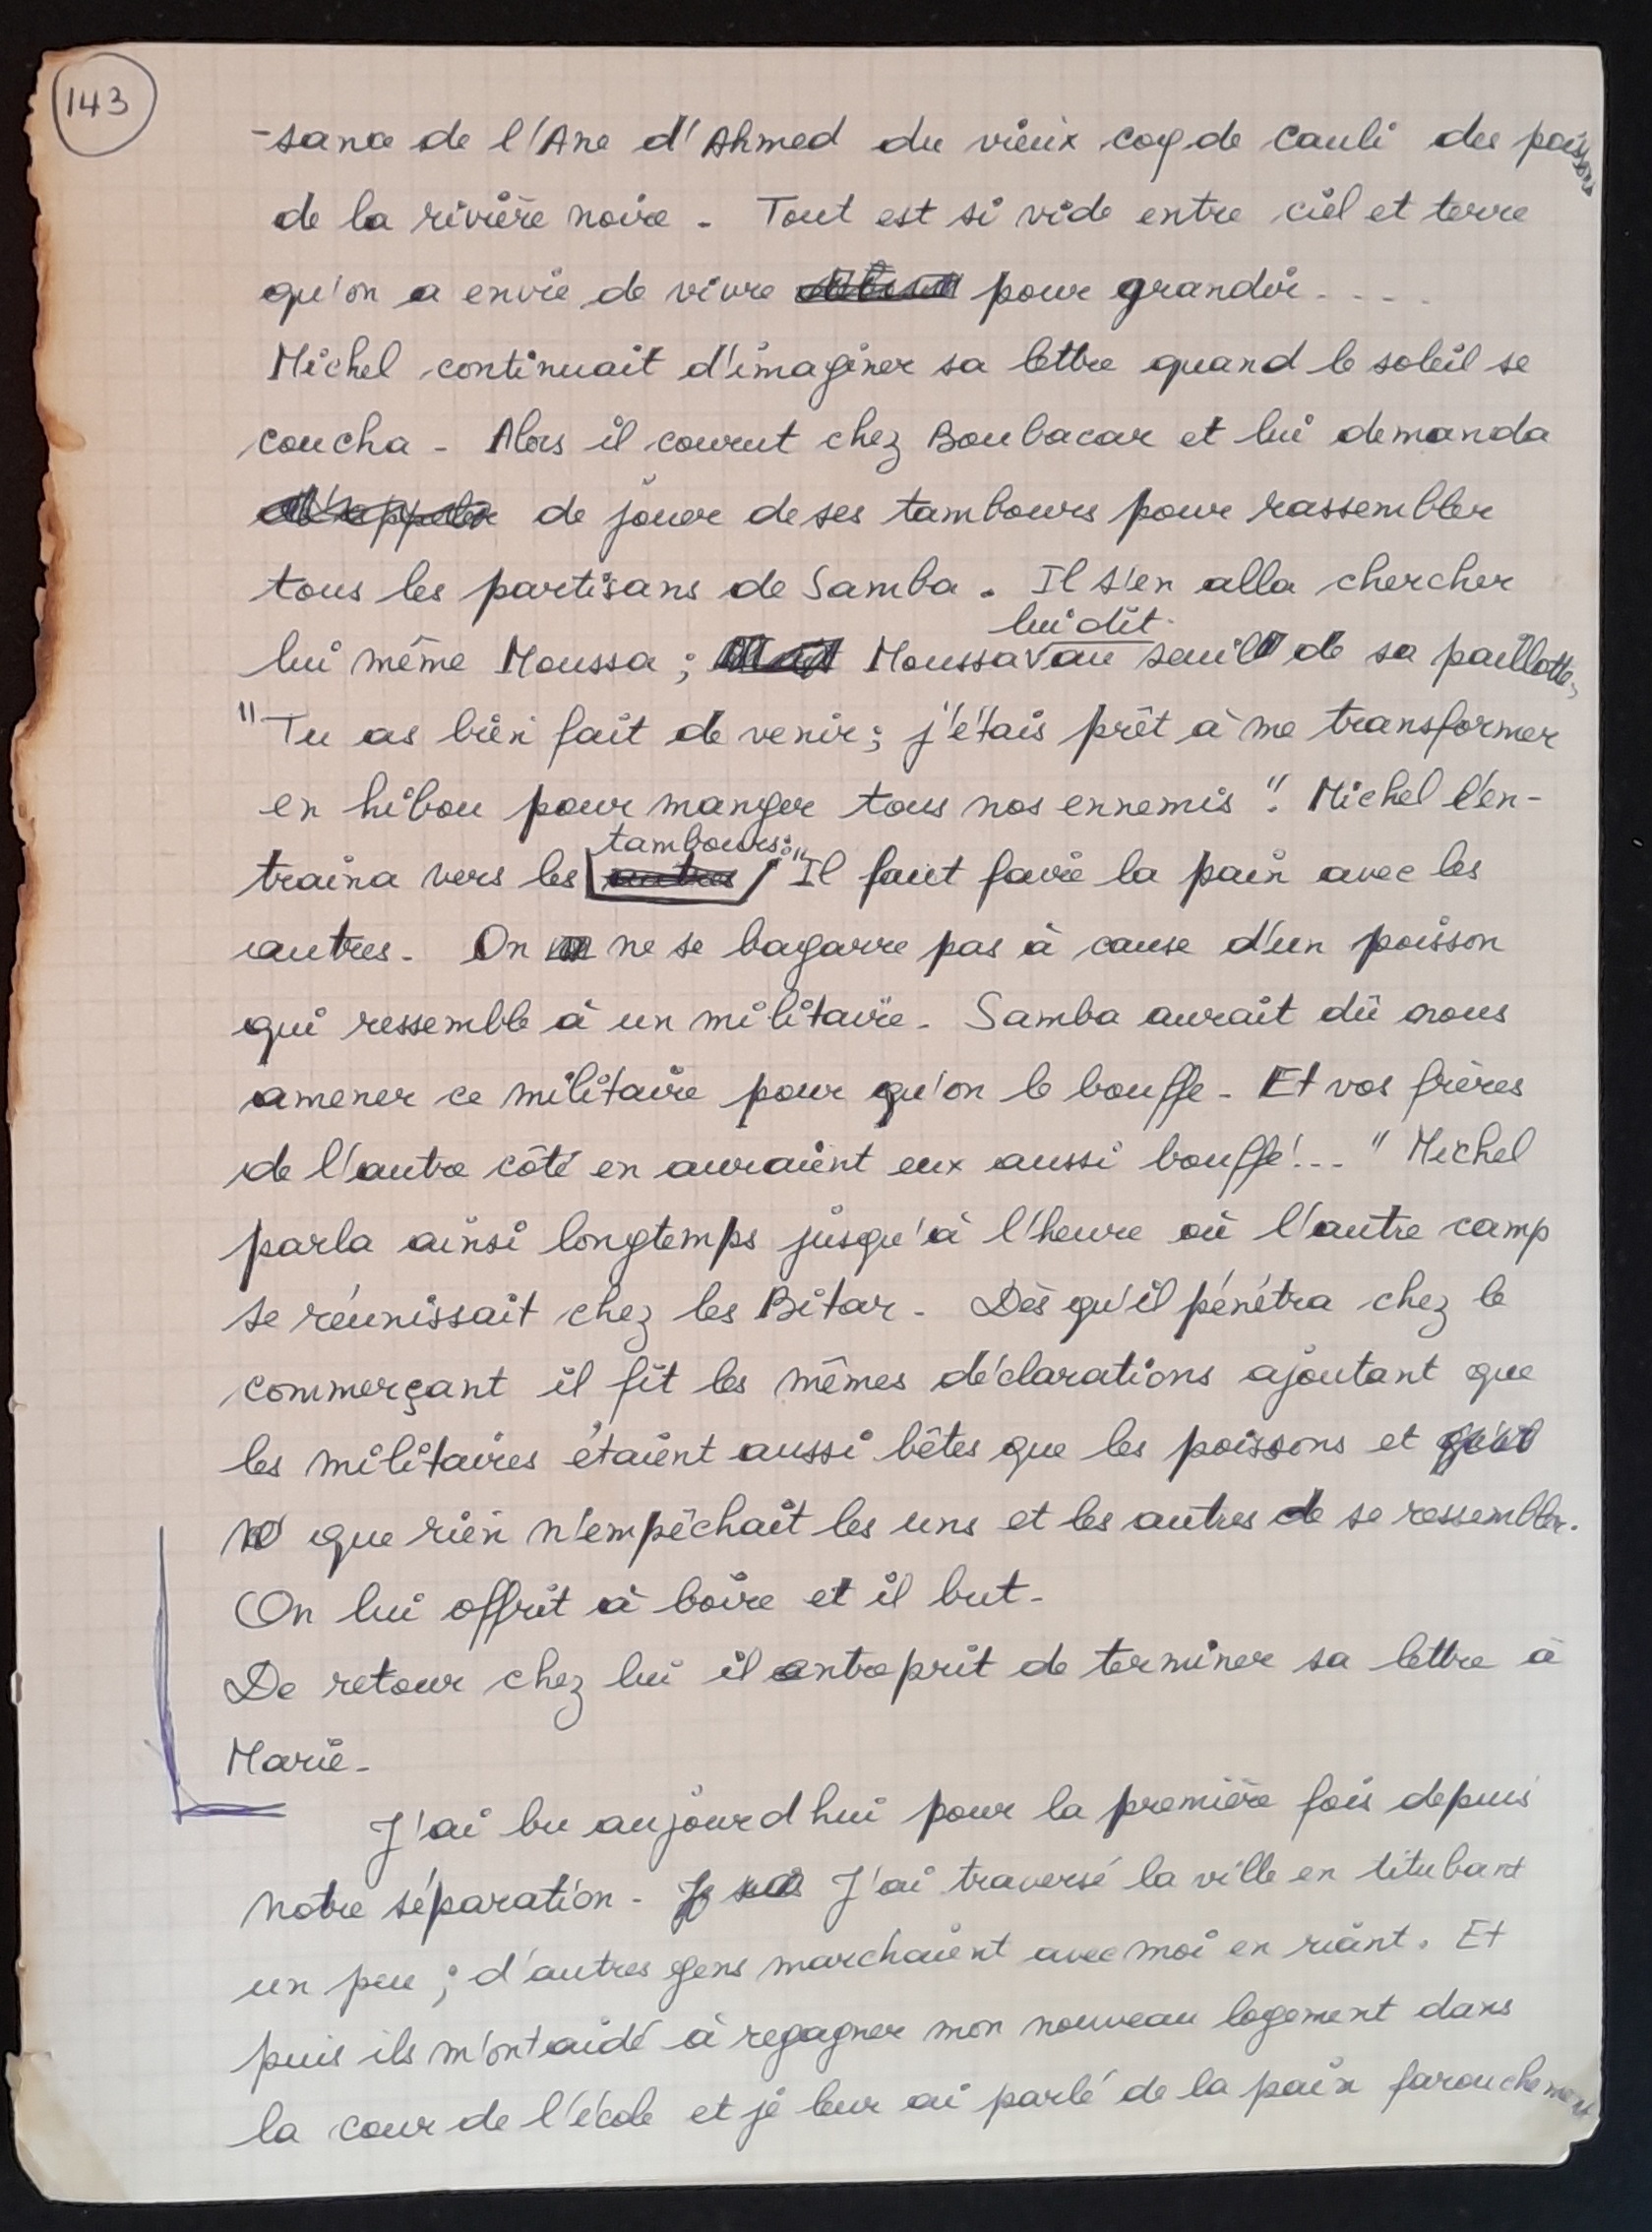 143
-sance de l'Ane d'Ahmed du vieux coq de Cauli des poissons
de la rivière noire - Tout est si vide entre ciel et terre
qu'on a envie de vivre pour grandir.....
Michel continuait d'imaginer sa lettre quand le soleil se
coucha - Alors il courut chez Boubacar et lui demanda
de jouer de ses tambours pour rassembler
tous les partisans de Samba. Il s'en alla chercher
lui dit
lui même Moussa ; Moussa au seuil de sa paillotte,
"Tu as bien fait de venir ; j'étais prêt à me transformer
en hibou pour manger tous nos ennemis". Michel l'en-
tambours:
traina vers les autres "Il faut faire la paix avec les
autres - On ne se bagarre pas à cause d'un poisson
qui ressemble à un militaire - Samba aurait dû nous
amener ce militaire pour qu'on le bouffe - Et vos frères
de l'autre côté en auraient eux aussi bouffé!..." Michel
parla ainsi longtemps jusqu'à l'heure où l'autre camp
se réunissait chez les Bitar - Dès qu'il pénétra chez le
commerçant il fit les mêmes déclarations ajoutant que
les militaires étaient aussi bêtes que les poissons et
que rien n'empêchait les uns et les autres de se ressembler.
On lui offrit à boire et il but -
De retour chez lui il entreprit de terminer sa lettre à
Marie -
J'ai bu aujourd'hui pour la première fois depuis
notre séparation - J'ai traversé la ville en titubant
un peu ; d'autres gens marchaient avec moi en riant. Et
puis ils m'ont aidé à regagner mon nouveau logement dans
la cour de l'école et je leur ai parlé de la paix farouchement